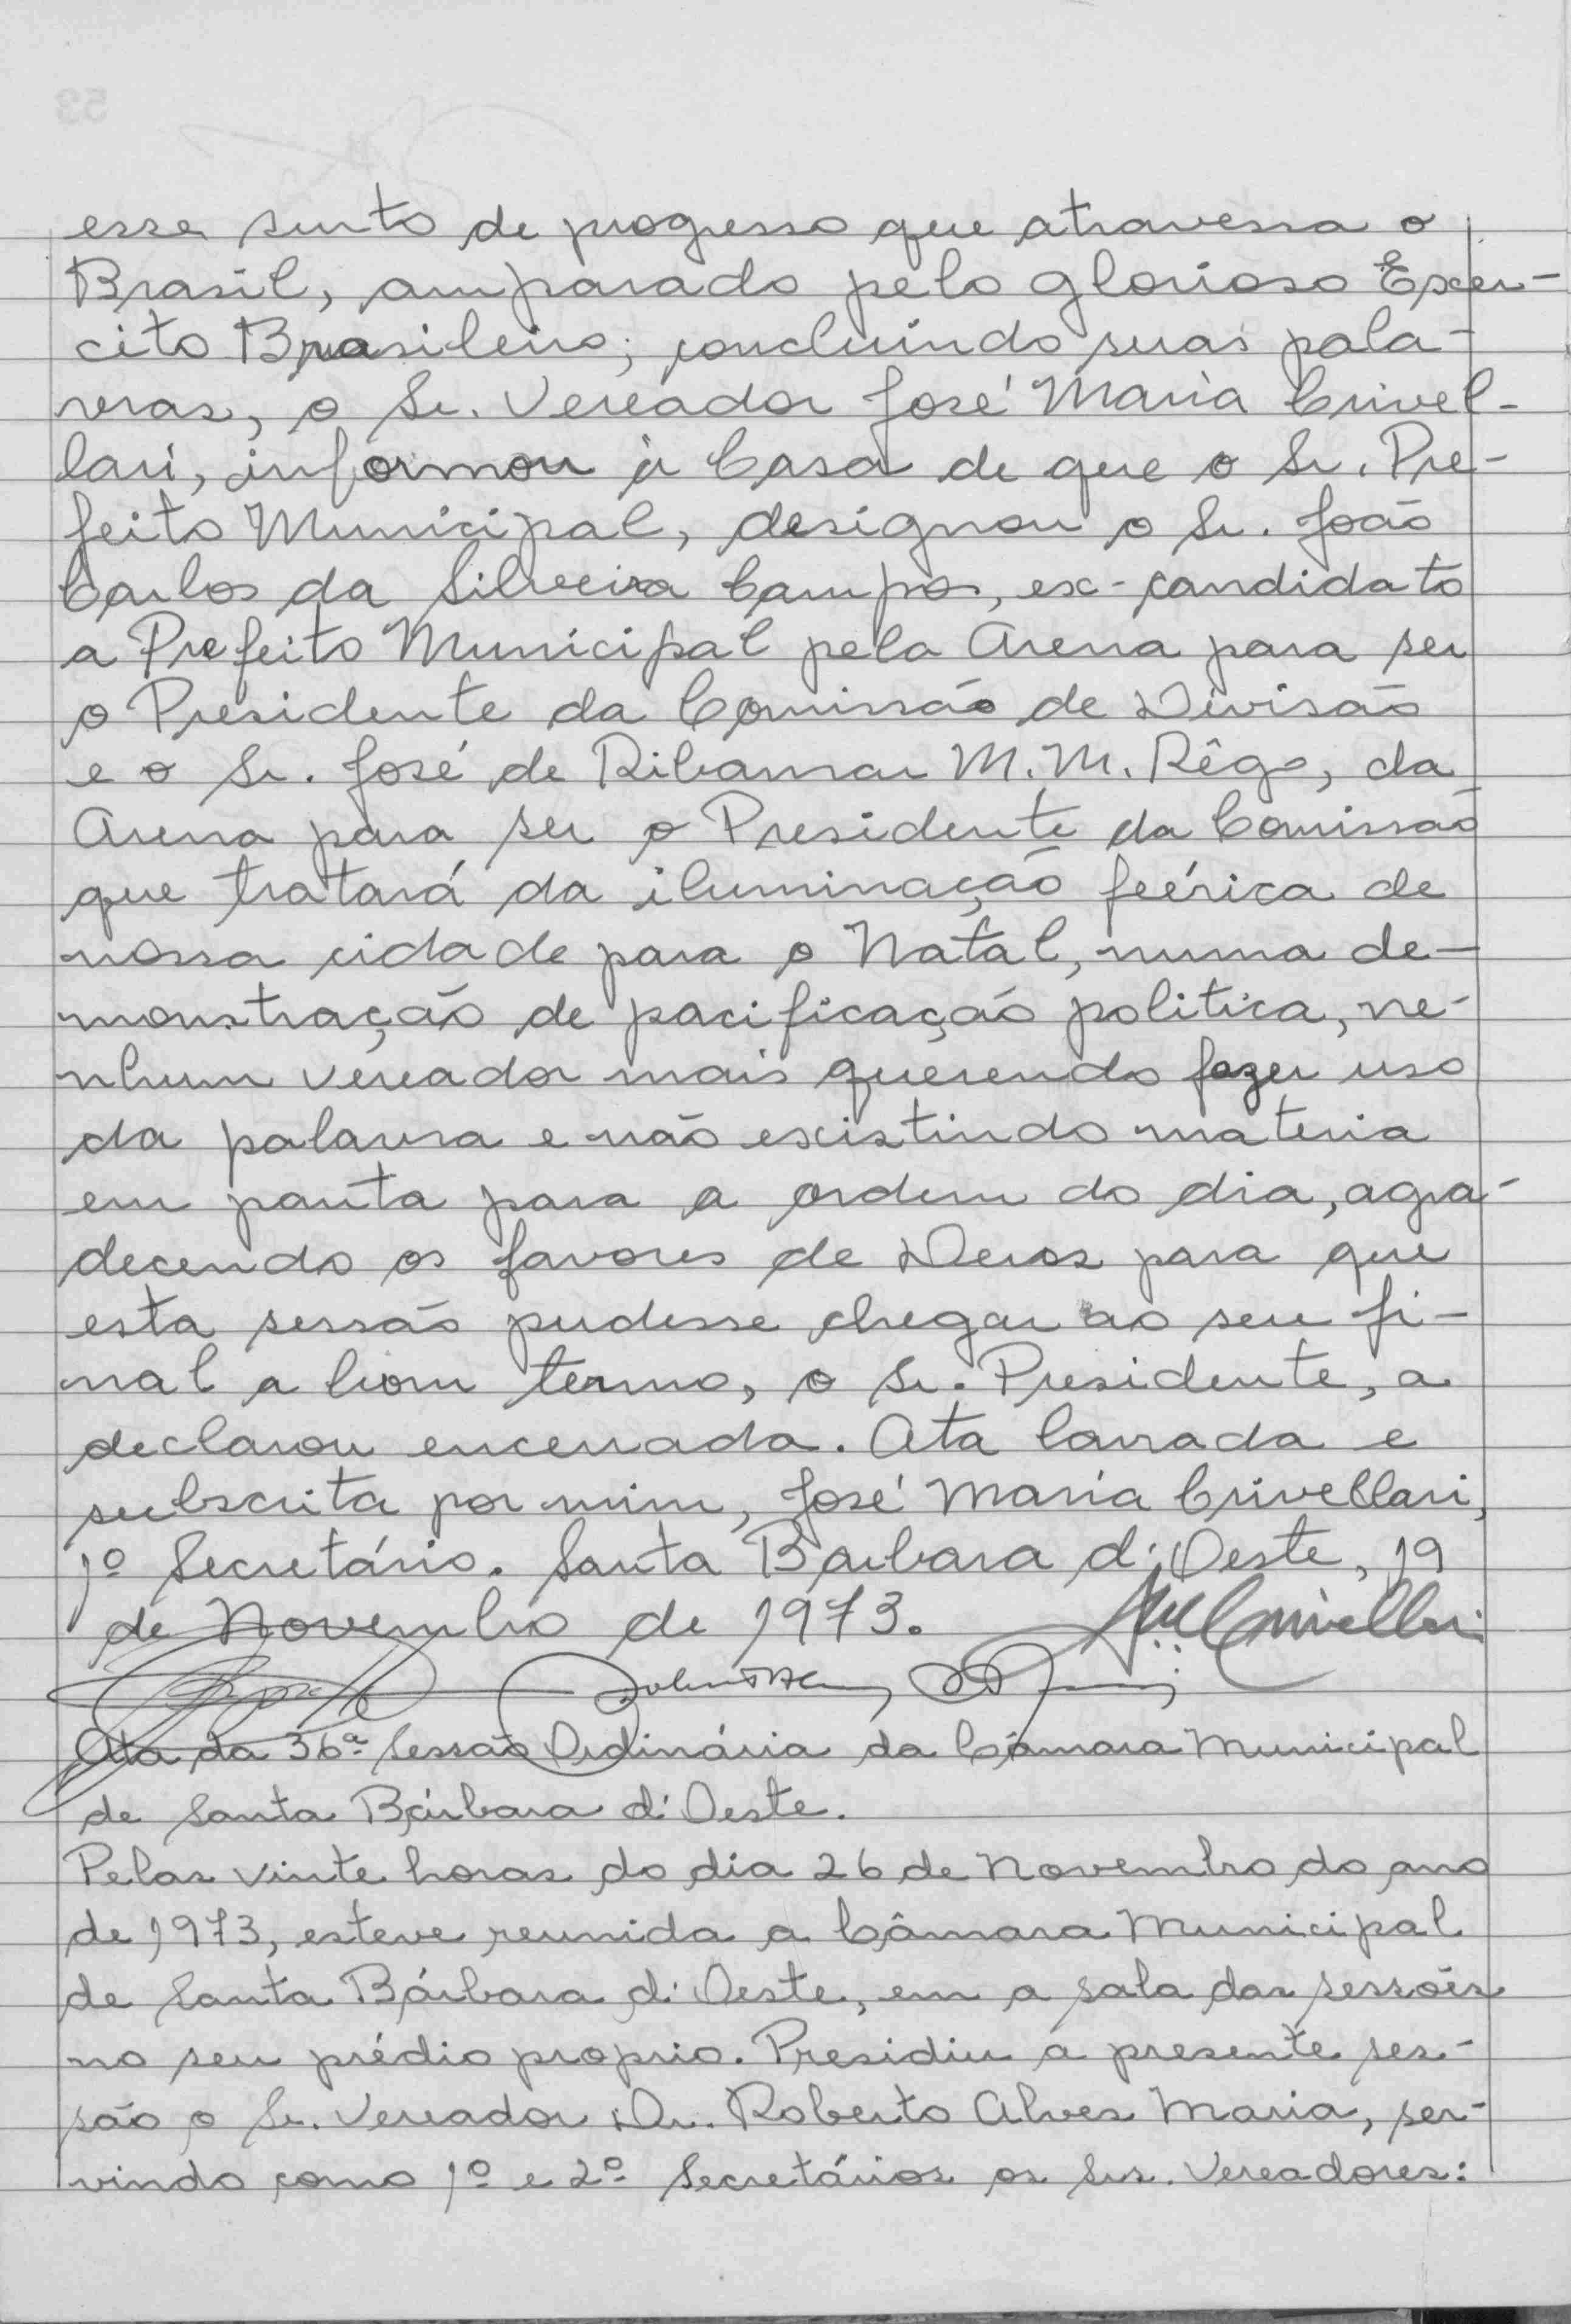 esse surto de progresso que atravessa o
Brasil, amparado pelo glorioso Exér-
cito Brasileiro; concluindo suas pala-
vras, o Sr. Vereador José Maria Crivel-
lari, informou à Casa de que o Sr. Pre-
feito Municipal, designou o Sr. João
Carlos da Silveira Campos, ex-candidato
a Prefeito Municipal pela Arena para ser
o Presidente da Comissão de Divisão
e o Sr. José de Ribamar M. M. Rêgo, da
Arena para ser o Presidente da Comissão
que tratará da iluminação feérica de
nossa cidade para o Natal, numa de-
monstração de pacificação politica, ne-
nhum vereador mais querendo fazer uso
da palavra e não existindo materia
em pauta para a ordem do dia, agra-
decendo os favores de Deus para que
esta sessão pudesse chegar ao seu fi-
nal a bom termo, o Sr. Presidente, a
declarou encerrada. Ata lavrada e
subscrita por mim, José Maria Crivellari,
1º Secretário. Santa Barbara d'Oeste, 19
de Novembro de 1973. Crivellari
Ata da 36ª Sessão Ordinária da Câmara Municipal
de Santa Bárbara d'Oeste.
Pelas vinte horas do dia 26 de Novembro do ano
de 1973, esteve reunida a Câmara Municipal
de Santa Bárbara d'Oeste, em a sala das sessões
no seu prédio proprio. Presidiu a presente ses-
são o Sr. Vereador Dr. Roberto Alves Maria, ser-
vindo como 1º e 2º Secretários os Srs. Vereadores: